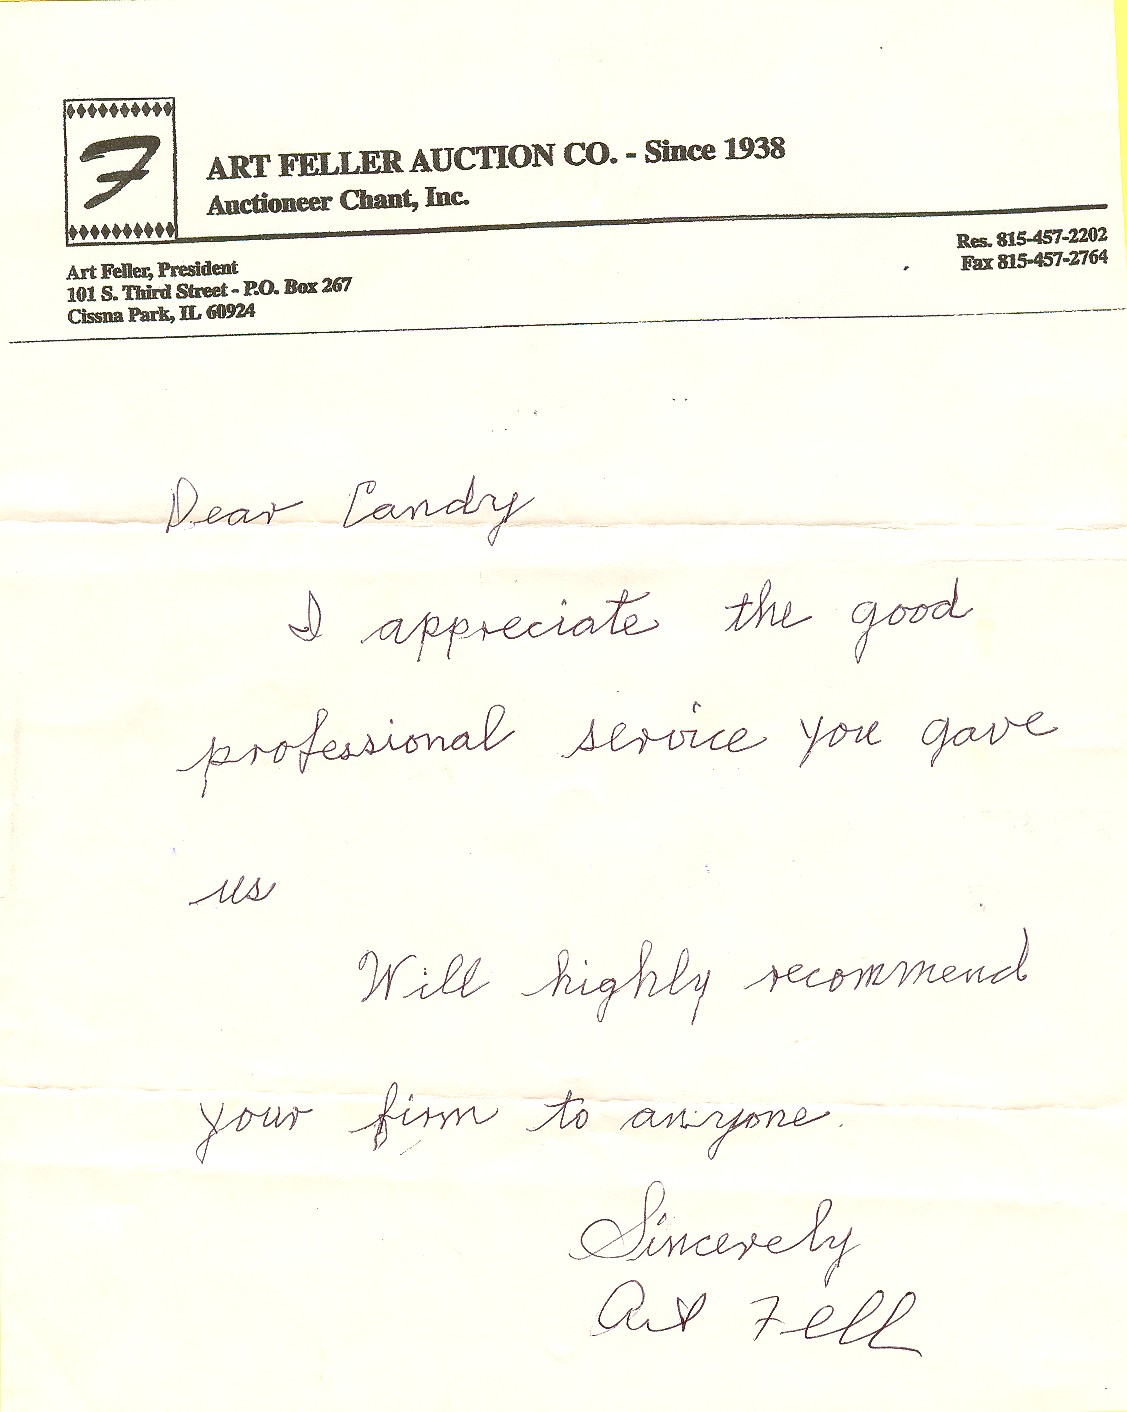 F
ART FELLER AUCTION CO. - Since 1938
Auctioneer Chant, Inc.
Res. 815-457-2202
Fax 815-457-2764
Art Feller, President
101 S. Third Street - P.O. Box 267
Cissna Park, IL 60924
Dear Candy
I appreciate the good
professional service you gave
us
Will highly recommend
your firm to anyone.
Sincerely
Art Fell